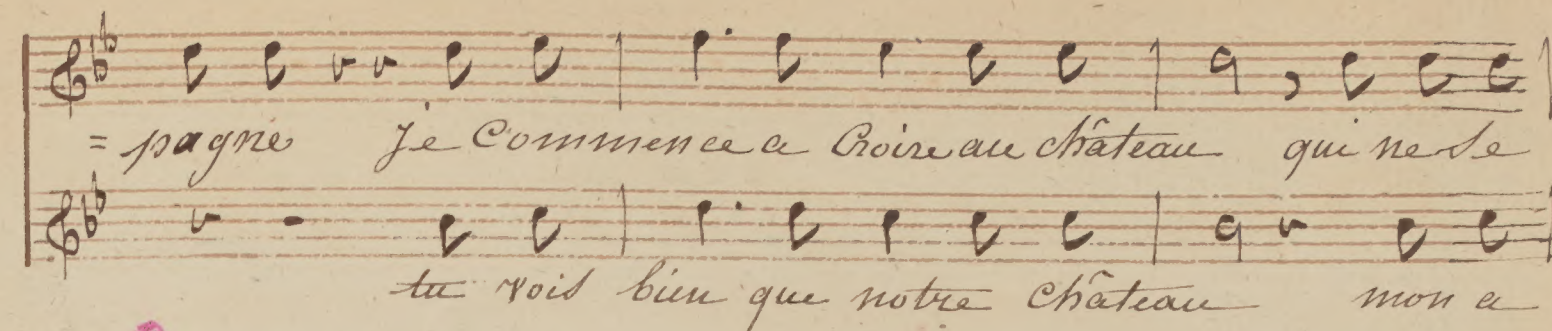 = pagne Je Commence a Croire au château qui ne se
tu vois bien que notre château mon a